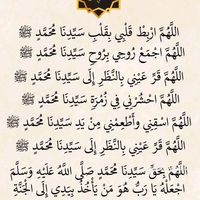 اللَّهُمَّ ارْبِطْ قَلْبِي بِقَلْبِ سَيِّدِنَا مُحَمَّدٍ ﷺ
اللَّهُمَّ اجْمَعْ رُوحِي بِرُوحِ سَيِّدِنَا مُحَمَّدٍ ﷺ
اللَّهُمَّ قَرِّ عَيْنِي بِالنَّظَرِ إِلَى سَيِّدِنَا مُحَمَّدٍ ﷺ
اللَّهُمَّ احْشُرْنِي فِي زُمْرَةِ سَيِّدِنَا مُحَمَّدٍ ﷺ
اللَّهُمَّ اسْقِنِي وَأَطْعِمْنِي مِنْ يَدِ سَيِّدِنَا مُحَمَّدٍ ﷺ
اللَّهُمَّ قَرِّ عَيْنِي بِالنَّظَرِ إِلَى سَيِّدِنَا مُحَمَّدٍ ﷺ
اللهُمَّ بِحَقِّ سَيِّدِنَا مُحَمَّدٍ صَلَّى اللهُ عَلَيْهِ وَسَلَّمَ
اجْعَلْهُ يَا رَبُّ هُوَ مَنْ يَأْخُذُ بِيَدِي إِلَى الْجَنَّةِ